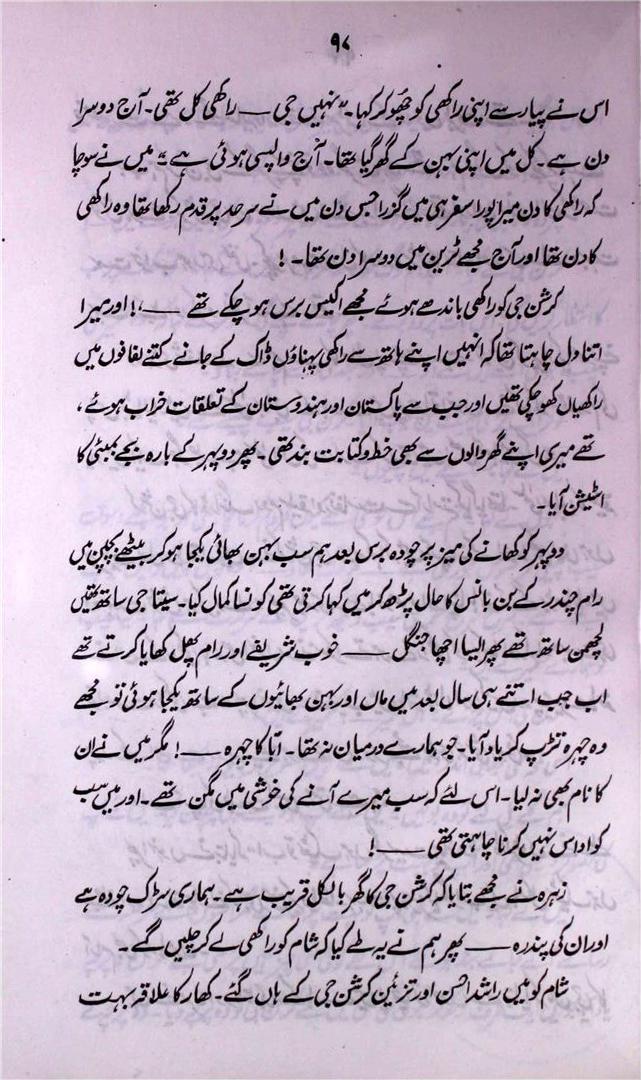 ۹۸
اس نے پیار سے اپنی راکھی کو چھو کر کہا۔ "نہیں جی —— راکھی کل تھی۔ آج دوسرا
دن ہے۔ کل میں اپنی بہن کے گھر گیا تھا۔ آج واپسی ہوئی ہے" میں نے سوچا
کہ راکھی کا دن میرا پورا سفر ہی میں گزرا جس دن میں نے سرحد پر قدم رکھا تھا وہ راکھی
کا دن تھا اور آج مجھے ٹرین میں دوسرا دن تھا۔ !
کرشن جی کو راکھی باندھے ہوئے مجھے اکیس برس ہو چکے تھے ——،! اور میرا
اتنا دل چاہتا تھا کہ انہیں اپنے ہاتھ سے راکھی پہناؤں ڈاک کے جانے کتنے لفافوں میں
راکھیاں کھو چکی تھیں اور جب سے پاکستان اور ہندوستان کے تعلقات خراب ہوئے،
تھے میری اپنے گھر والوں سے بھی خط و کتابت بند تھی۔ پھر دوپہر کے بارہ بجے بمبئی کا
اسٹیشن آیا۔
دوپہر کو کھانے کی میز پر چودہ برس بعد ہم سب بہن بھائی یکجا ہو کر بیٹھے بچپن میں
رام چندر کے بن بانس کا حال پڑھ کر میں کہا کرتی تھی کونسا کمال کیا۔ سیتا جی ساتھ تھیں
لچھمن ساتھ تھے پھر ایسا اچھا جنگل —— خوب شریفے اور رام پھل کھایا کرتے تھے
اب جب اتنے ہی سال بعد میں ماں اور بہن بھائیوں کے ساتھ یکجا ہوئی تو مجھے
وہ چہرہ تڑپ کر یاد آیا۔ جو ہمارے درمیان نہ تھا۔ ابّا کا چہرہ ——! مگر میں نے ان
کا نام بھی نہ لیا۔ اس لئے کہ سب میرے آنے کی خوشی میں مگن تھے۔ اور میں سب
کو اداس نہیں کرنا چاہتی تھی ——!
زہرہ نے مجھے بتایا کہ کرشن جی کا گھر بالکل قریب ہے۔ ہماری سڑک چودہ ہے
اور ان کی پندرہ —— پھر ہم نے یہ طے کیا کہ شام کو راکھی لے کر چلیں گے۔
شام کو میں راشد احسن اور تزئین کرشن جی کے ہاں گئے۔ کھار کا علاقہ بہت